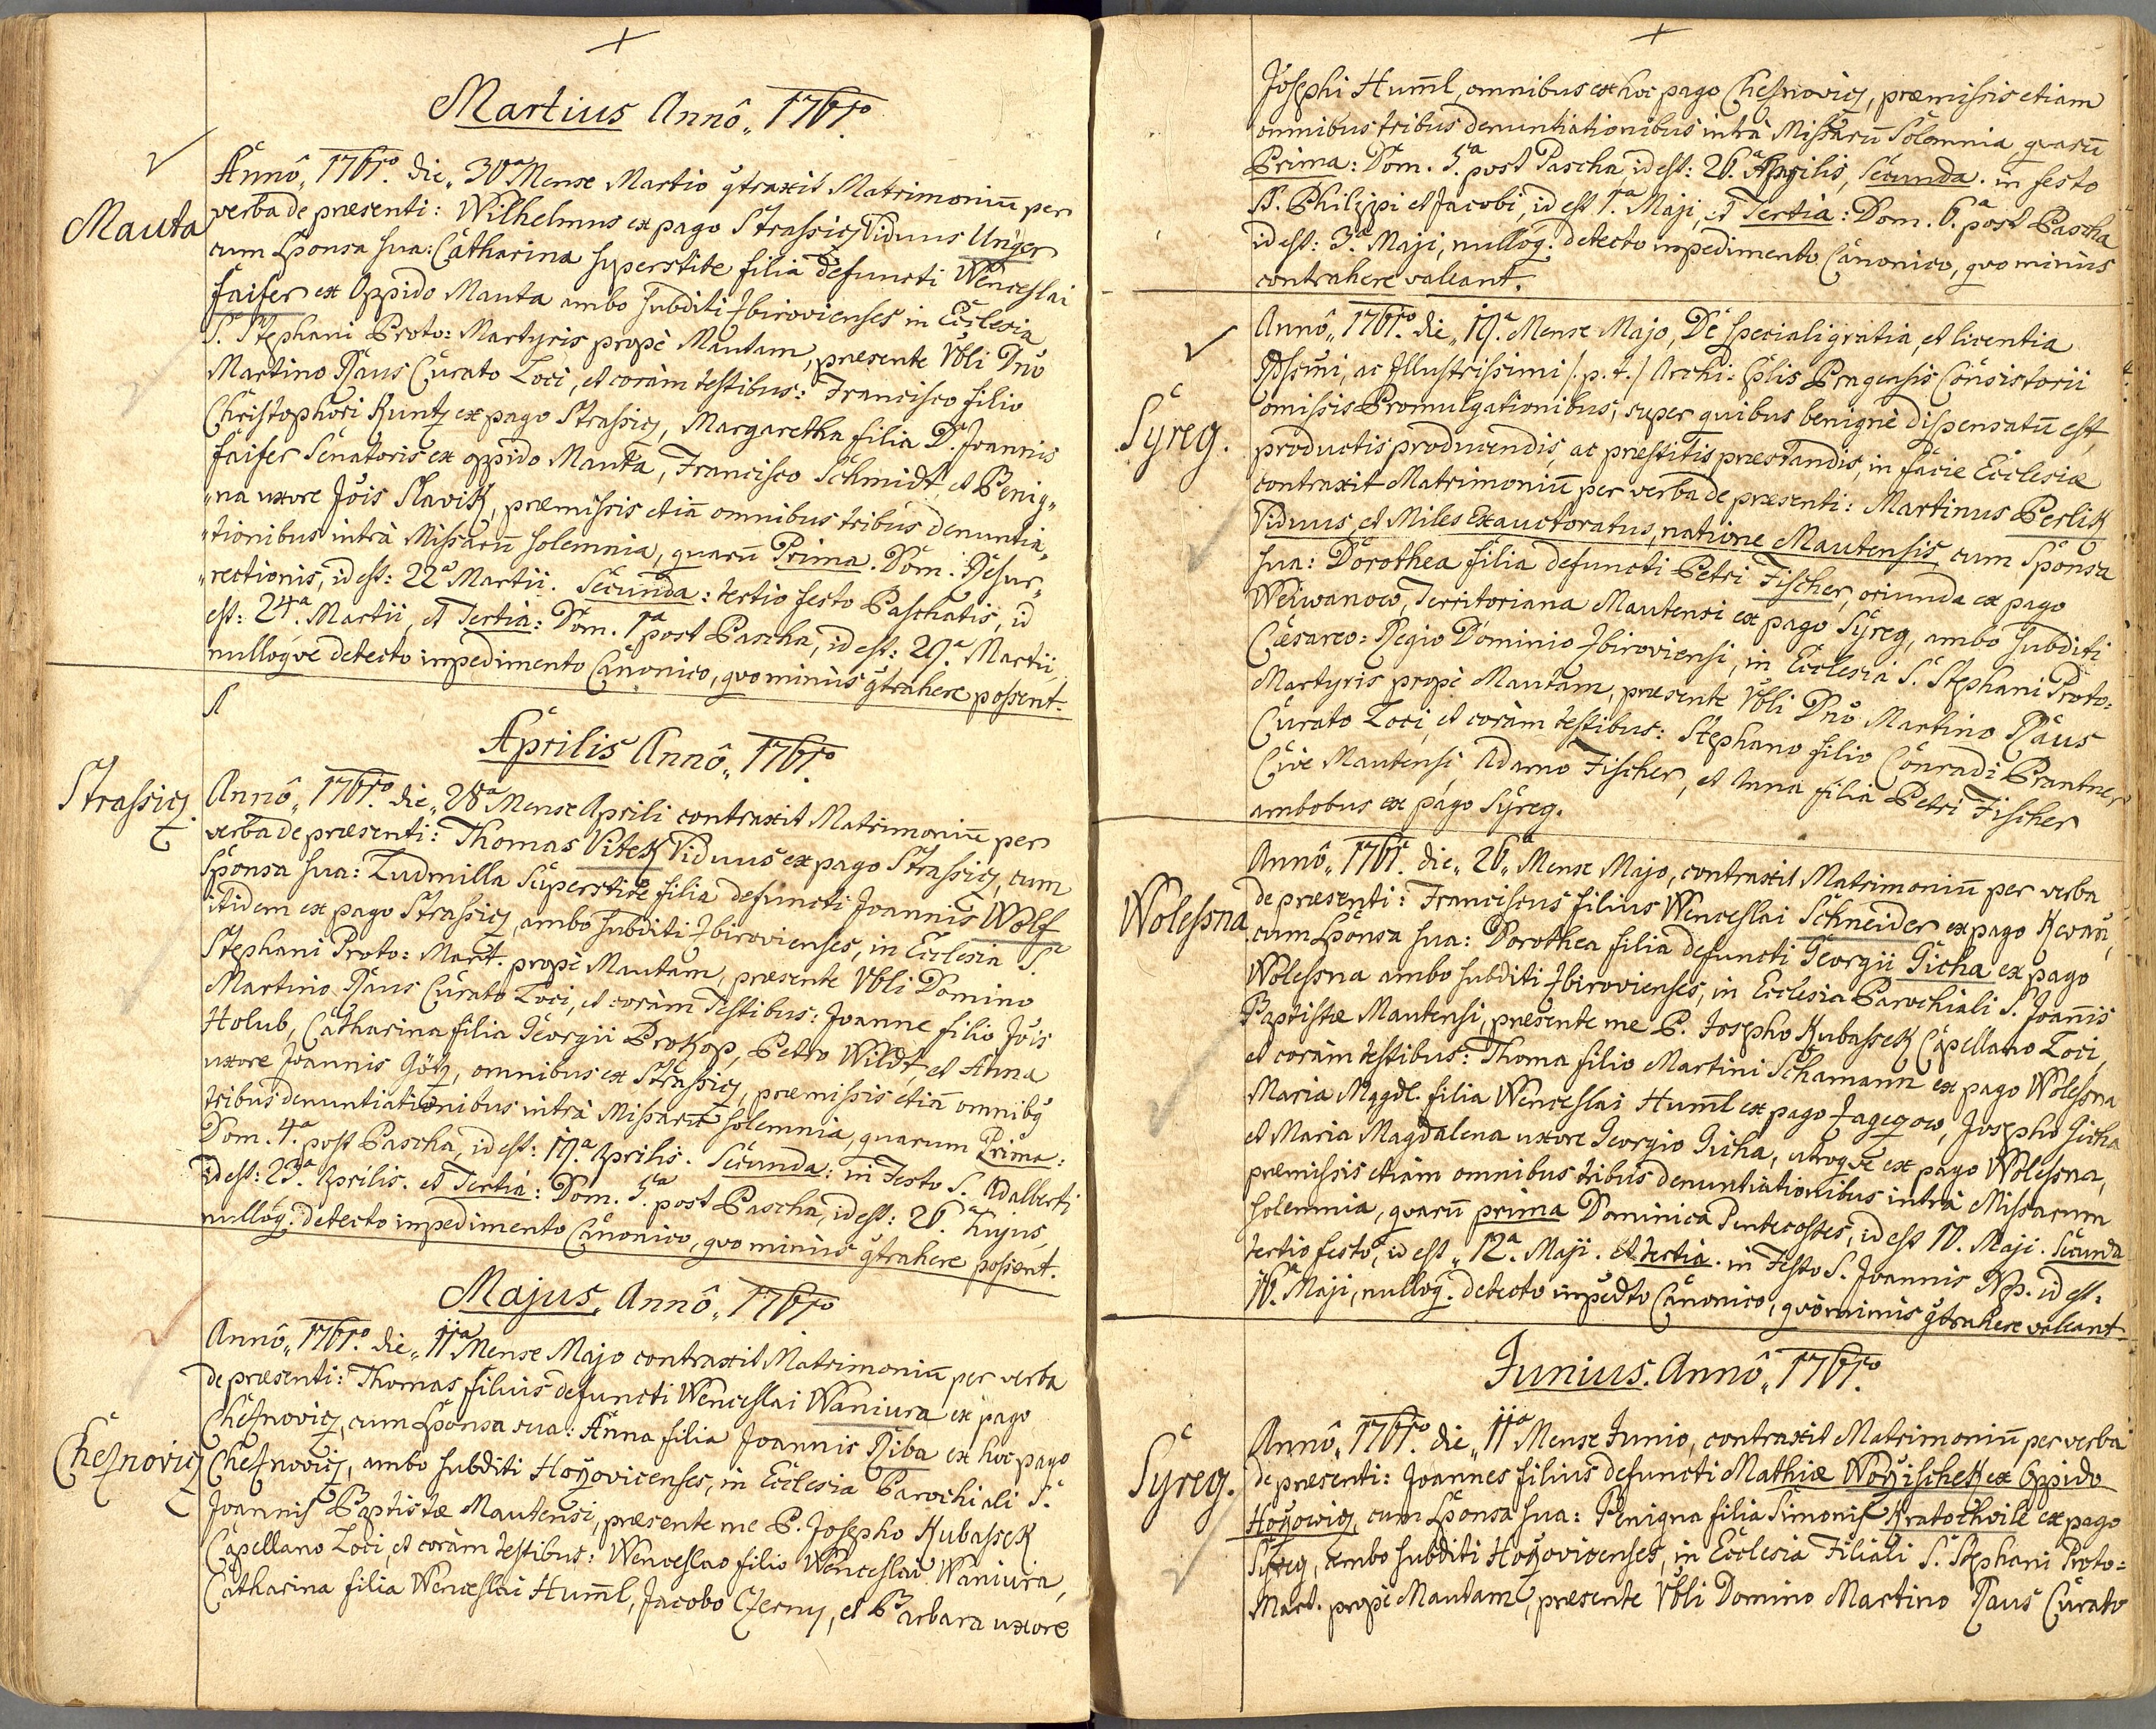 Martius Annô„ 1761mo.
Mauta
Annô„ 1761mo. die„ 30a Mense Martio gtraxit Matrimoniū per
verba de præsenti: Wilhelmus ex pago Strassicz Viduus Unger
cum Sponsa sua: Catharina superstite filia defuncti Wenceslai
faifer ex Oppido Mauta ambo subditi Zbirovienses in Ecclesia
S. Stephani Proto: Martyris propè Mautam, præsente Vbli Dnô
Martino Raus Curato Loci, et coràm testibus: Francisco filio
Christophori Kuntz ex pago Strassicz, Margaretha filia D. Joannis
faifer Senatoris ex oppido Mauta, Francisco Schmidt, et Benig„
„na uxore Jôis Slavik, præmissis etiā omnibus tribus denuntia„
„tionibus intrà Missarū solemnia, quarū Prima. Dom. Resur„
„rectionis, id est: 22a Martii. Secunda: tertio festo Paschatis, id
est: 24a. Martii, et Tertia: Dom. 1a post Pascha, id est: 29a. Martii,
nulloqve detecto impedimento Canonico, qvominùs gtrahere possent.
Aprilis Annô„ 1761mo.
Strassicz.
Annô„ 1761mo. die„ 28a Mense Aprili contraxit Matrimoniū per
verba de præsenti: Thomas Vitek Viduus ex pago Strassicz, cum
Sponsa sua: Ludmilla Superstite filia defuncti Joannis Wolf
itidem ex pago Strassicz, ambo subditi Zbirovienses, in Ecclesia S.
Stephani Proto: Mart. propè Mautam, præsente Vbli Domino
Martino Raus Curato Loci, et coràm Testibus: Joanne filio Jôis
Holub, Catharina filia Georgii Prokop, Petro Wildt, et Anna
uxore Joannis Götz, omnibus ex Strassicz, præmissis etiā omnibg
tribus denuntiationibus intrà Missarū solemnia, quarum Prima:
Dom. 4a. post Pascha, id est: 19a. Aprilis. Secunda: in Festo S. Adalberti
id est: 23a. Aprilis. et Tertia: Dom. 5a. post Pascha, id est: 26a. hujus,
nulloq. detecto impedimento Canonico, qvominùs gtrahere possent.
Majus, Annô„ 1761mo
Chesnovicz
Annô„ 1761mo. die„ 11a Mense Majo contraxit Matrimoniū per verba
de præsenti: Thomas filius defuncti Wenceslai Waniura ex pago
Chesnovicz, cum Sponsa sua: Anna filia Joannis Riba ex hoc pago
Chesnovicz, ambo subditi Hořovicenses, in Ecclesia Parochiali S.
Joannis Baptistæ Mautensi, præsente me P. Josepho Kubassek
Capellano Loci, et coràm testibus: Wenceslao filio Wenceslai Waniura,
Catharina filia Wenceslai Hum̄l, Jacobo Czerny, et Barbara uxore
Josephi Hum̄l, omnibus ex hoc pago Chesnovicz, præmissis etiam
omnibus tribus denuntiationibus intrà Missarū Solemnia quarū
Prima: Dom. 5a. post Pascha, id est: 26a. Aprilis, Secunda. in festo
SS. Philippi et Jacobi, id est 1a. Maji, et Tertia: Dom. 6a. post Pascha
id est: 3a. Maji, nulloq. detecto impedimento Canonico, qvo minùs
contrahere valeant.
Syreg.
Annô„ 1761mo die„ 19a. Mense Majo, De speciali gratia, et licentia
Rdssmi, ac Illustrissimi /.p.t./ Archi-Eplis Pragensis Consistorii
omissis Promulgationibus, super quibus benignè dispensatū est,
productis producendis, ac præstitis præstandis, in facie Ecclesiæ
contraxit Matrimoniū per verba de præsenti: Martinus Perlik
Viduus et Miles Exauctoratus, natione Mautensis, cum Sponsa
sua: Dorothea filia defuncti Petri Fischer, oriunda ex pago
Weiwanow, Territoriana Mautensi ex pago Syreg, ambo subditi
Cæsareo-Regio Dominio Zbiroviensi, in Ecclesia S. Stephani Proto-
Martyris propè Mautam, præsente Vbli Dnô Martino Raus
Curato Loci, et coràm testibus: Stephano filio Conradi Prantner
Cive Mautensi, Adamo Fischer, et Anna filia Petri Fischer
ambobus ex pago Syreg.
Wolessna
Annô„ 1761mo. die„ 26a„ Mense Majo, contraxit Matrimoniū per verba
de præsenti: Franciscus filius Wenceslai Schneider ex pago Kwan,
cum Sponsa sua: Dorothea filia defuncti Georgii Gicha ex pago
Wolessna ambo subditi Zbirovienses, in Ecclesia Parochiali S. Joan̄is
Baptistæ Mautensi, præsente me P. Josepho Kubassek Capellano Loci,
et coràm testibus: Thoma filio Martini Schamann ex pago Wolessna
Maria Magdl. filia Wenceslai Hum̄l ex pago Zageczow, Josepho Gicha
et Maria Magdalena uxore Georgio Gicha, utroqve ex pago Wolessna,
præmissis etiàm omnibus tribus denuntiationibus intrà Missarum
solemnia, qvarū prima Dominica Pentecostes, id est 10. Maji. Secunda
tertio festo, id est„ 12a. Maji. et tertia. in Festo S. Joannis Np. id est:
16a. Maji, nulloq. detecto impedto Canonico, qvòminùs gtrahere valeant.
Junius. Annô„ 1761mo.
Syreg.
Annô„ 1761mo. die„ 11a Mense Junio, contraxit Matrimoniū per verba
de præsenti: Joannes filius defuncti Mathiæ Wořischek ex Oppido
Hořowicz, cum Sponsa sua: Benigna filia Simonis Kratochvile ex pago
Syreg, ambo subditi Hořovicenses, in Ecclesia Filiali S. Stephani Proto-
Mart. propè Mautam, præsente Vbli Domino Martino Raus Curato